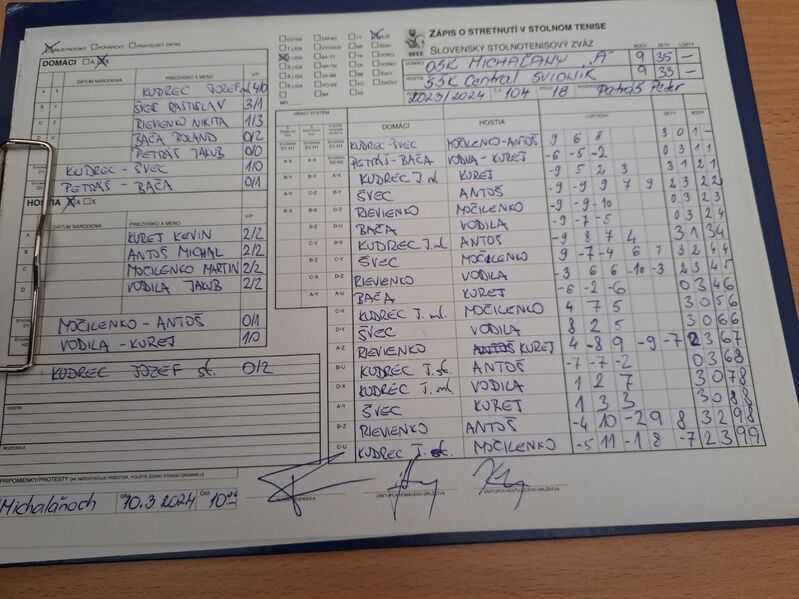 MAJSTROVSKÝ POHÁROVÝ PRIATEĽSKÝ ZÁPAS
ZÁPIS O STRETNUTÍ V STOLNOM TENISE
SLOVENSKÝ STOLNOTENISOVÝ ZVÄZ
BODY SETY LOPTY
DOMÁCI OŠK MICHAĽANY "A" 9 35 -
HOSTIA ŠŠK Central SVIDNÍK 9 33 -
2023/2024 104 18 Petráš Peter
DOMÁCI A X
DÁTUM NARODENIA PRIEZVISKO A MENO V/P
KUDREC JOZEF ml 4/0
ŠVEC RASTISLAV 3/1
RIEVIENKO NIKITA 1/3
BAČA ROLAND 0/2
PETRÁŠ JAKUB 0/0
KUDREC - ŠVEC 1/0
PETRÁŠ - BAČA 0/1
HOSTIA A X
DÁTUM NARODENIA PRIEZVISKO A MENO V/P
KUREJ KEVIN 2/2
ANTOŠ MICHAL 2/2
MOČILENKO MARTIN 2/2
VODILA JAKUB 2/2
MOČILENKO - ANTOŠ 0/1
VODILA - KUREJ 1/0
KUDREC JOZEF st. 0/2
HOSTIA
ROZHODCA
HRACÍ SYSTÉM DOMÁCI HOSTIA LOPTIČKY SETY BODY
KUDREC-ŠVEC MOČILENKO-ANTOŠ 9 6 8 3 0 1 -
PETRÁŠ-BAČA VODILA-KUREJ -6 -5 -2 0 3 1 1
KUDREC J. ml KUREJ -9 5 2 3 3 1 2 1
ŠVEC ANTOŠ -9 -9 9 7 -9 2 3 2 2
RIEVIENKO MOČILENKO -9 -9 -10 0 3 2 3
BAČA VODILA -9 -7 -5 0 3 2 4
KUDREC J. ml ANTOŠ -9 8 7 4 3 1 3 4
ŠVEC MOČILENKO 9 -7 -4 6 7 3 2 4 4
RIEVIENKO VODILA -3 6 6 -10 -3 2 3 4 5
BAČA KUREJ -6 -2 -6 0 3 4 6
KUDREC J. ml MOČILENKO 4 7 5 3 0 5 6
ŠVEC VODILA 8 2 5 3 0 6 6
RIEVIENKO ANTOŠ KUREJ 4 -8 9 -9 -7 2 3 6 7
KUDREC J. st. ANTOŠ -7 -7 -2 0 3 6 8
KUDREC J. ml. VODILA 1 2 7 3 0 7 8
ŠVEC KUREJ 1 3 3 3 0 8 8
RIEVIENKO ANTOŠ -4 10 -2 9 8 3 2 9 8
KUDREC J. st. MOČILENKO -5 11 -1 8 -7 2 3 9 9
PRIPOMIENKY/PROTESTY (AK NEPOSTAČUJE PRIESTOR, POUŽITE ZADNÚ STRANU ORIGINÁLU)
Michaľanoch DŇA 10.3 2024 ČAS 10
ROZHODCA
ZÁSTUPCA DOMÁCEHO DRUŽSTVA
ZÁSTUPCA HOSŤUJÚCEHO DRUŽSTVA